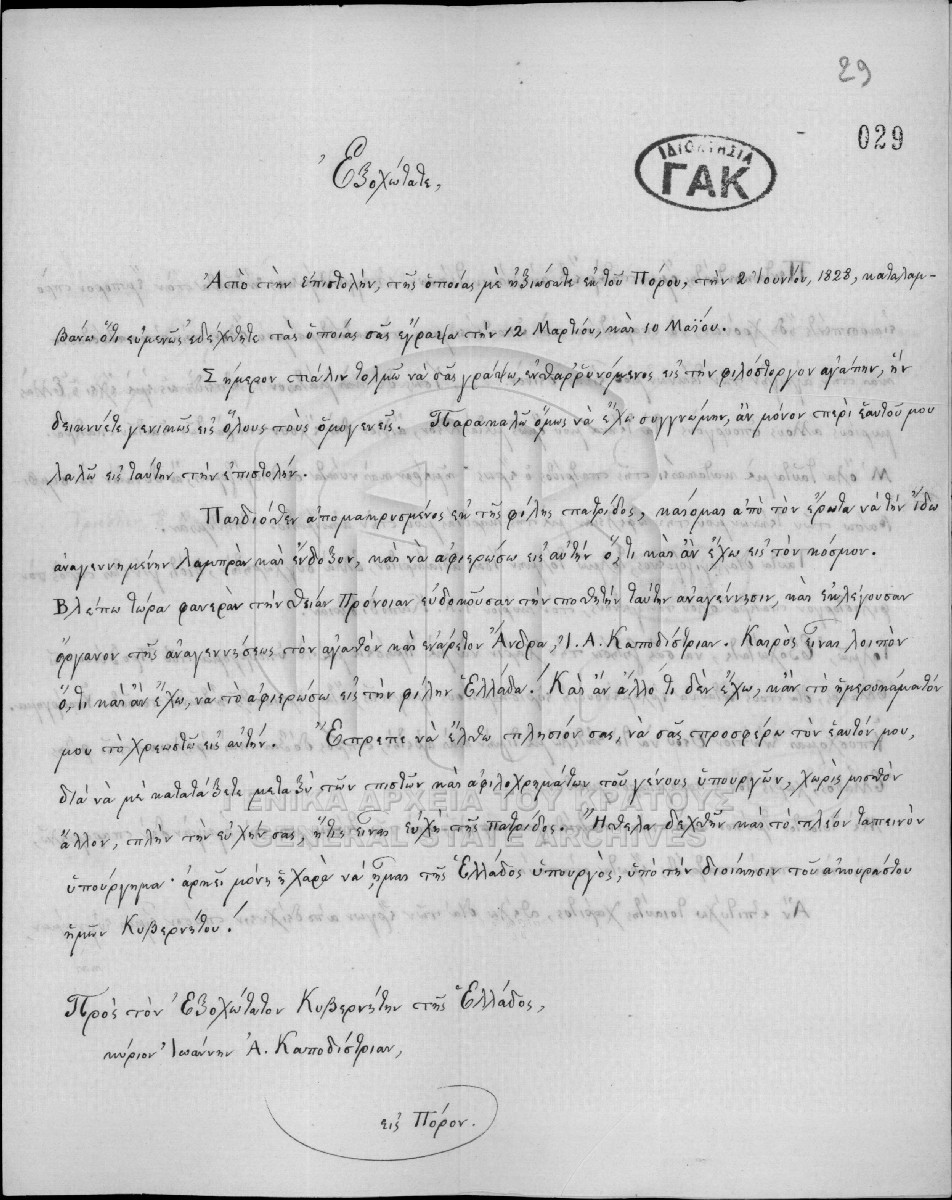 29
029
ΙΔΙΟΚΤΗΣΙΑ
ΓΑΚ
Ἐξοχώτατε,
Ἀπὸ τὴν ἐπιστολὴν, τῆς ὁποίας μὲ ἠξιώσατε ἐκ τοῦ Πόρου, τὴν 2 Ἰουνίου, 1828, καταλαμ-
βάνω ὅτι εὐμενῶς ἐδέχθητε τὰς ὁποίας σᾶς ἔγραψα τὴν 12 Μαρτίου, καὶ 10 Μαΐου.
Σήμερον πάλιν τολμῶ νὰ σᾶς γράψω, ἐνθαῤῥυνόμενος εἰς τὴν φιλόστοργον ἀγάπην, ἣν
δεικνύετε γενικῶς εἰς ὅλους τοὺς ὁμογενεῖς. Παρακαλῶ ὅμως νὰ ἔχω συγγνώμην, ἂν μόνον περὶ ἑαυτοῦ μου
λαλῶ εἰς ταύτην τὴν ἐπιστολήν.
Παιδιόθεν ἀπομακρυσμένος ἐκ τῆς φίλης πατρίδος, καίομαι ἀπὸ τὸν ἔρωτα νὰ τὴν ἴδω
ἀναγεννημένην λαμπρὰν καὶ ἔνδοξον, καὶ νὰ ἀφιερώσω εἰς αὐτὴν ὅ,τι καὶ ἂν ἔχω εἰς τὸν κόσμον.
Βλέπω τώρα φανερὰν τὴν θείαν Πρόνοιαν εὐδοκοῦσαν τὴν ποθητὴν ταύτην ἀναγέννησιν, καὶ ἐκλέγουσαν
ὄργανον τῆς ἀναγεννήσεως τὸν ἀγαθὸν καὶ ἐνάρετον Ἄνδρα, Ἰ. Α. Καποδίστριαν. Καιρὸς εἶναι λοιπὸν
ὅ,τι καὶ ἂν ἔχω, νὰ τὸ ἀφιερώσω εἰς τὴν φίλην Ἑλλάδα! Καὶ ἂν ἄλλό τι δὲν ἔχω, κἂν τὸ ἡμεροκάματόν
μου τὸ χρεωστῶ εἰς αὐτήν. Ἔπρεπε νὰ ἔλθω πλησίον σας, νὰ σᾶς προσφέρω τὸν ἑαυτόν μου,
διὰ νὰ μὲ κατατάξετε μεταξὺ τῶν πιστῶν καὶ ἀφιλοχρημάτων τοῦ γένους ὑπουργῶν, χωρὶς μισθὸν
ἄλλον, πλὴν τὴν εὐχήν σας, ἥτις εἶναι εὐχὴ τῆς πατρίδος. Ἤθελα δεχθῆν καὶ τὸ πλέον ταπεινὸν
ὑπούργημα· ἀρκεῖ μόνη ἡ χαρὰ νὰ ἦμαι τῆς Ἑλλάδος ὑπουργὸς, ὑπὸ τὴν διοίκησιν τοῦ ἀκουράστου
ἡμῶν Κυβερνήτου!
Πρὸς τὸν Ἐξοχώτατον Κυβερνήτην τῆς Ἑλλάδος,
κύριον Ἰωάννην Ἀ. Καποδίστριαν,
εἰς Πόρον.
ΓΕΝΙΚΑ ΑΡΧΕΙΑ ΤΟΥ ΚΡΑΤΟΥΣ
GENERAL STATE ARCHIVES